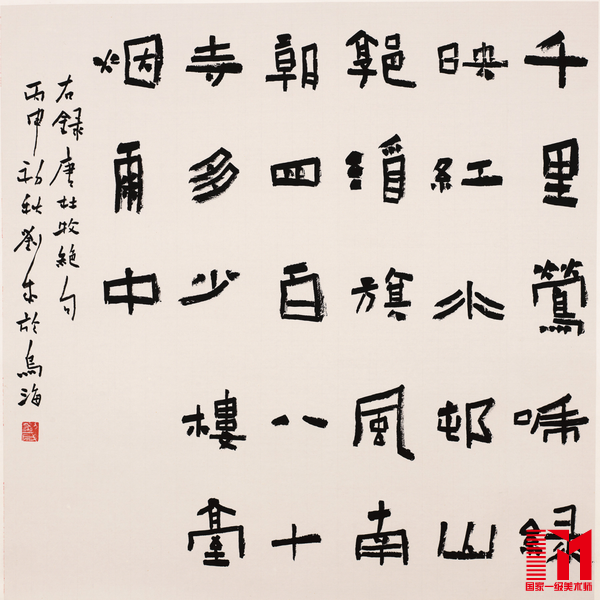 千里鶯啼緑
映紅水邨山
郭酒旗風南
朝四百八十
寺多少樓臺
烟雨中
右録唐杜牧絶句
丙申初秋劉於烏海
国家一级美术师